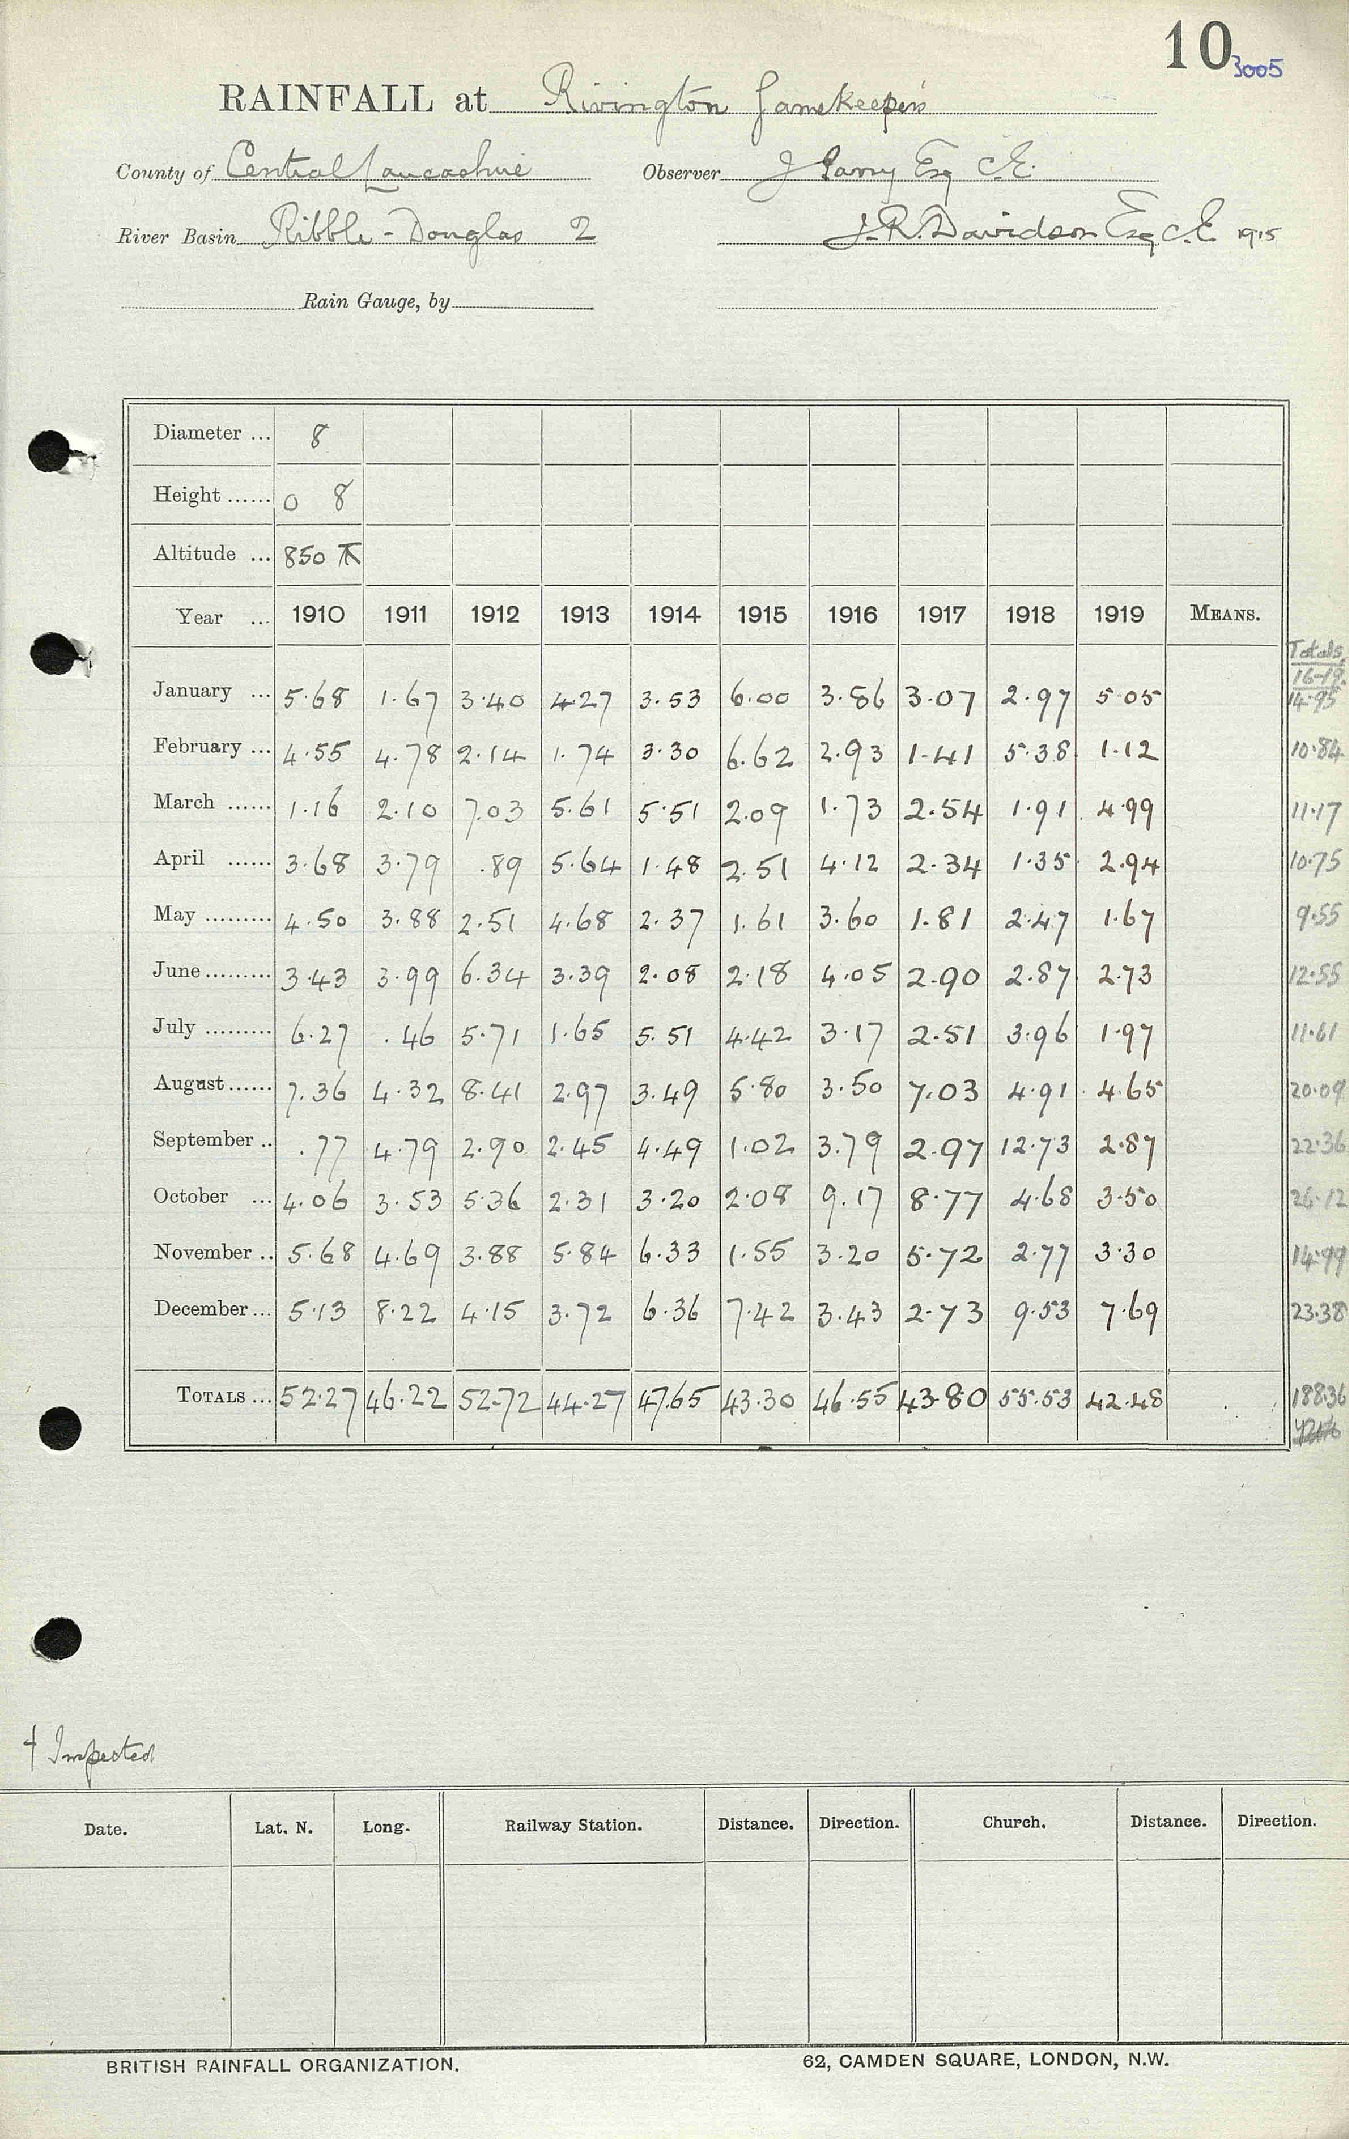 10 3005
RAINFALL at Rivington Gamekeeper's
County of Central Lancashire Observer J Parry Esq C.E.
River Basin Ribble - Douglas 2 J.R. Davidson Esq C.E. 1915
Rain Gauge, by
Diameter ... 8
Height ...... 0 8
Altitude ... 850
Year ... 1910 1911 1912 1913 1914 1915 1916 1917 1918 1919 MEANS.
Totals
16-19.
January ... 5.68 1.67 3.40 4.27 3.53 6.00 3.86 3.07 2.97 5.05 14.95
February ... 4.55 4.78 2.14 1.74 3.30 6.62 2.93 1.41 5.38 1.12 10.84
March ...... 1.16 2.10 7.03 5.61 5.51 2.09 1.73 2.54 1.91 4.99 11.17
April ...... 3.68 3.79 .89 5.64 1.48 2.51 4.12 2.34 1.35 2.94 10.75
May ......... 4.50 3.88 2.51 4.68 2.37 1.61 3.60 1.81 2.47 1.67 9.55
June ......... 3.43 3.99 6.34 3.39 2.08 2.18 4.05 2.90 2.87 2.73 12.55
July ......... 6.27 .46 5.71 1.65 5.51 4.42 3.17 2.51 3.96 1.97 11.61
August ...... 7.36 4.32 8.41 2.97 3.49 5.80 3.50 7.03 4.91 4.65 20.09
September .. .77 4.79 2.90 2.45 4.49 1.02 3.79 2.97 12.73 2.87 22.36
October ... 4.06 3.53 5.36 2.31 3.20 2.08 9.17 8.77 4.68 3.50 26.12
November .. 5.68 4.69 3.88 5.84 6.33 1.55 3.20 5.72 2.77 3.30 14.99
December ... 5.13 8.22 4.15 3.72 6.36 7.42 3.43 2.73 9.53 7.69 23.38
TOTALS ... 52.27 46.22 52.72 44.27 47.65 43.30 46.55 43.80 55.53 42.48 188.36
† Inspected
Date. Lat. N. Long. Railway Station. Distance. Direction. Church. Distance. Direction.
BRITISH RAINFALL ORGANIZATION. 62, CAMDEN SQUARE, LONDON, N.W.